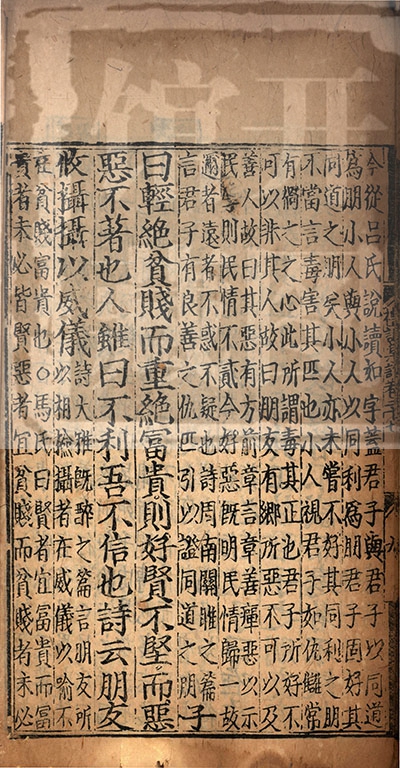 今從呂氏說讀如字蓋君子與君子以同道
為朋小人與小人以同利為朋君子固好其
同道之朋矣小人亦未嘗不好其同利之朋
不當言毒害其匹也小人視君子如仇讎常
有禍之之心此所謂毒其正也君子所好不
可以非其人故曰朋友有鄉所惡不可以及
善人故曰其惡有方前章言章善癉惡以示
民則民情不貳今好惡既明民情歸一故
邇者遠者不惑不疑也詩周南關雎之篇
言君子有良善之仇匹引以證同道之朋
子
曰輕絕貧賤而重絕富貴則好賢不堅而惡
惡不著也人雖曰不利吾不信也詩云朋友
攸攝攝以威儀
詩大雅既醉之篇言朋友所
以相檢攝者在威儀以喻不
在貧賤富貴也○馬氏曰賢者宜富貴而富
貴者未必皆賢惡者宜貧賤而貧賤者未必